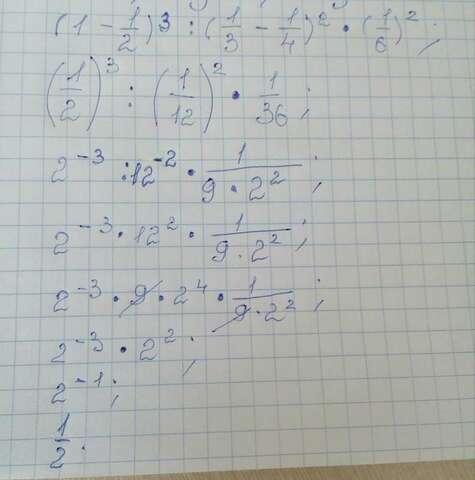 (1 - 1/2)³ : (1/3 - 1/4)² · (1/6)² ;
(1/2)³ : (1/12)² · 1/36 ;
2⁻³ : 12⁻² · 1/(9 · 2²) ;
2⁻³ · 12² · 1/(9 · 2²) ;
2⁻³ · 9 · 2⁴ · 1/(9 · 2²) ;
2⁻³ · 2² ;
2⁻¹ ;
1/2 .